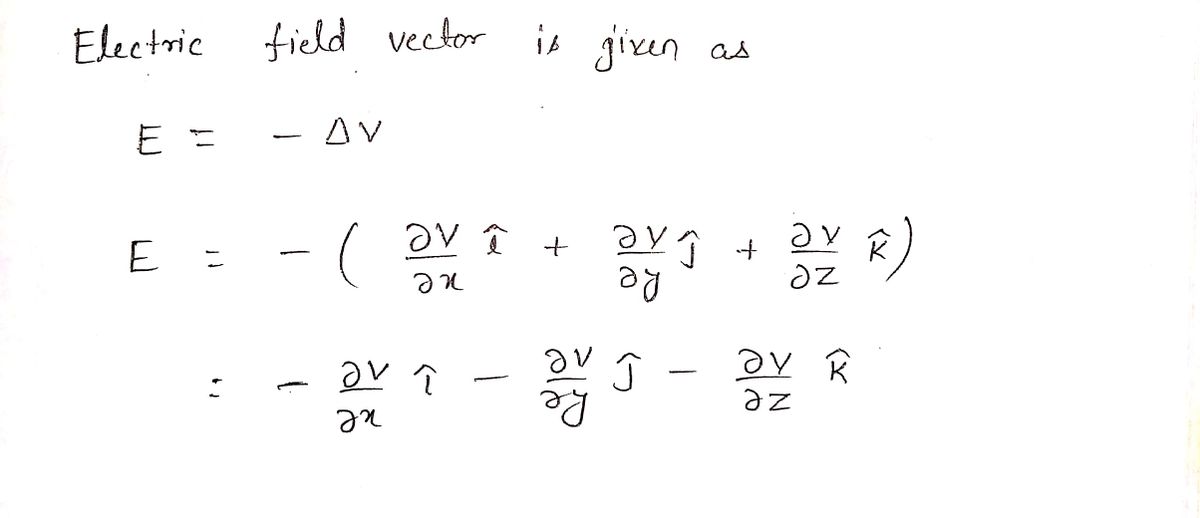 Electric field vector is given as
E = - ΔV
E = - ( ∂V/∂x î + ∂V/∂y ĵ + ∂V/∂z k̂ )
= - ∂V/∂x î - ∂V/∂y ĵ - ∂V/∂z k̂